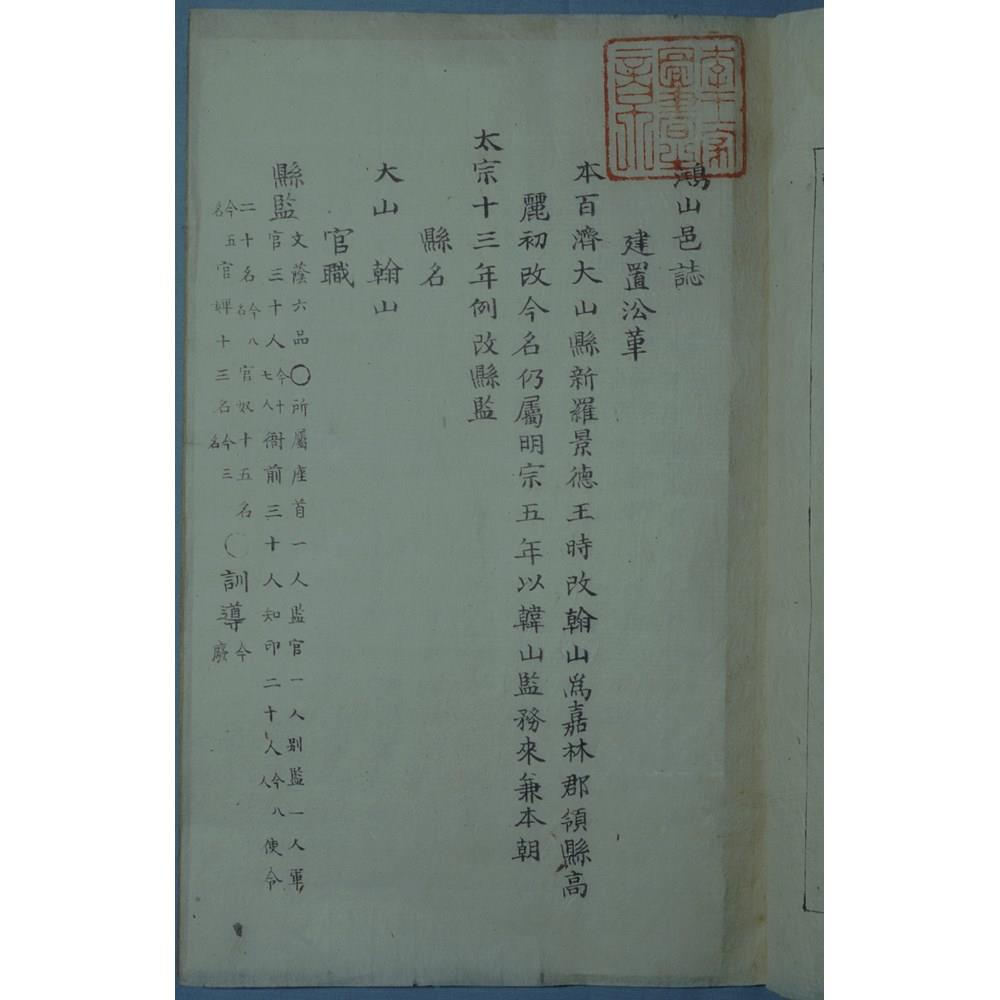 李王家圖書之章
鴻山邑誌
建置沿革
本百濟大山縣新羅景德王時改翰山爲嘉林郡領縣高
麗初改今名仍屬明宗五年以韓山監務來兼本朝
太宗十三年例改縣監
縣名
大山 翰山
官職
縣監 文蔭六品○所屬座首一人監官一人別監一人軍
官三十人今十七人衙前三十人知印二十人今八人使令
二十名今八名官奴十五名
今五名官婢十三名今三名○訓導今廢